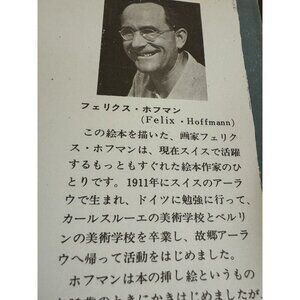 フェリクス・ホフマン
(Felix・Hoffmann)
この絵本を描いた、画家フェリク
ス・ホフマンは、現在スイスで活躍
するもっともすぐれた絵本作家のひ
とりです。1911年にスイスのアーラ
ウで生まれ、ドイツに勉強に行って、
カールスルーエの美術学校とベルリ
ンの美術学校を卒業し、故郷アーラ
ウへ帰って活動をはじめました。
ホフマンは本の挿し絵というもの
のときにかきはじめましたが